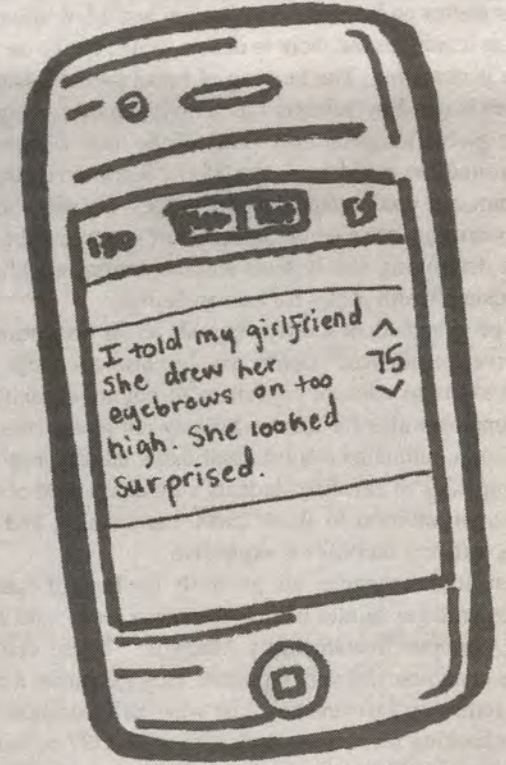 180
New Hot
I told my girlfriend
she drew her
75
eyebrows on too
high. She looked
surprised.